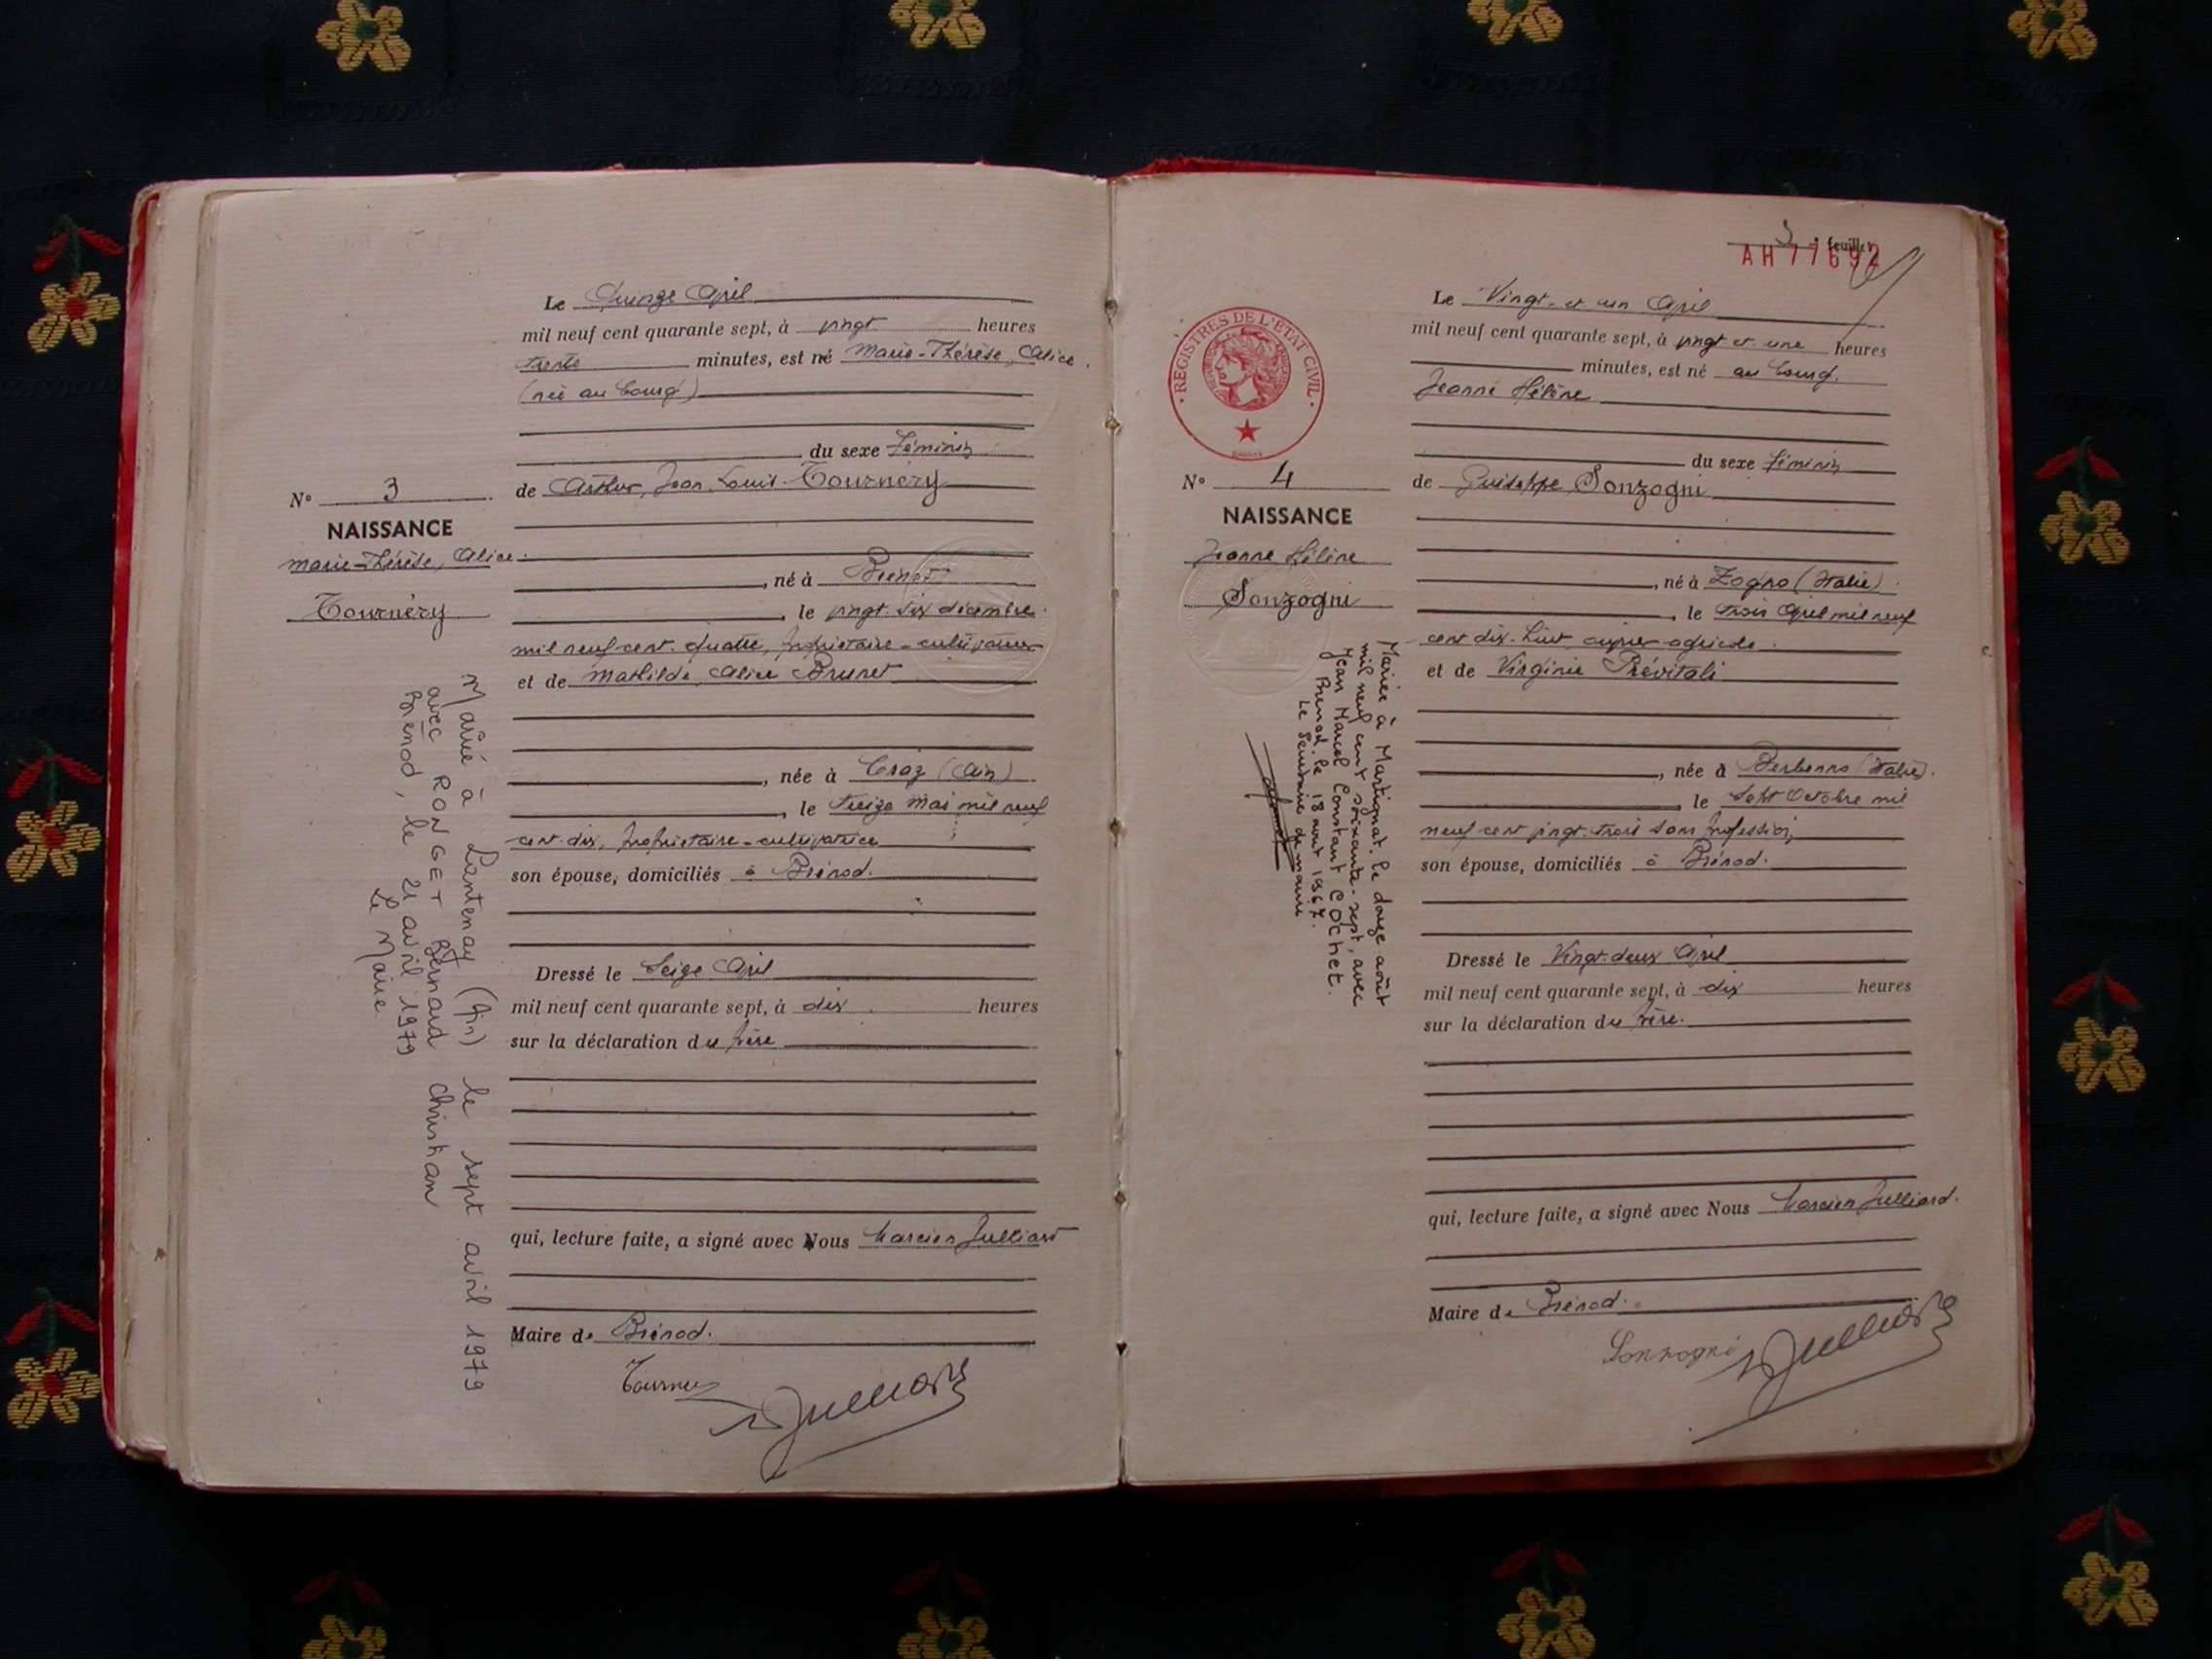 Le Quinze Avril
mil neuf cent quarante sept, à vingt heures
trente minutes, est né Marie-Thérèse, Alice
(née au bourg)
du sexe féminin
N° 3
de Arthur, Jean Louis Tournéry
NAISSANCE
Marie-Thérèse, Alice
Tournéry
, né à Brénod
, le vingt six décembre
mil neuf cent quatre, propriétaire-cultivateur
et de Mathilde, Alice Brunet
, née à (Ain)
, le treize Mai mil neuf
cent dix, propriétaire-cultivatrice
son épouse, domiciliés à Brénod.
Dressé le Seize Avril
mil neuf cent quarante sept, à dix heures
sur la déclaration du père
qui, lecture faite, a signé avec Nous Marcien Julliard
Maire de Brénod.
Mariée à Lantenay (Ain) le sept avril 1979
avec RONGET Bernard Christian
Brénod, le 21 avril 1979
Le Maire
3e feuillet
AH 77692
REGISTRES DE L'ETAT CIVIL
Le Vingt et un Avril
mil neuf cent quarante sept, à vingt et une heures
minutes, est né au bourg.
Jeanne Hélène
du sexe féminin
N° 4
de Guiseppe Sonzogni
NAISSANCE
Jeanne Hélène
Sonzogni
, né à Zogno (Italie)
, le trois Avril mil neuf
cent dix-huit ouvrier agricole
et de Virginie Prévitali
, née à Berbenno (Italie).
le Sept Octobre mil
neuf cent vingt trois sans profession,
son épouse, domiciliés à Brénod.
Dressé le Vingt deux Avril
mil neuf cent quarante sept, à dix heures
sur la déclaration du père.
qui, lecture faite, a signé avec Nous Marcien Julliard.
Maire de Brénod.
Sonzogni
Mariée à Martignat le douze août
mil neuf cent soixante-sept, avec
Jean Marcel Constant COCHET.
Brénod le 18 août 1967.
Le Secrétaire de mairie